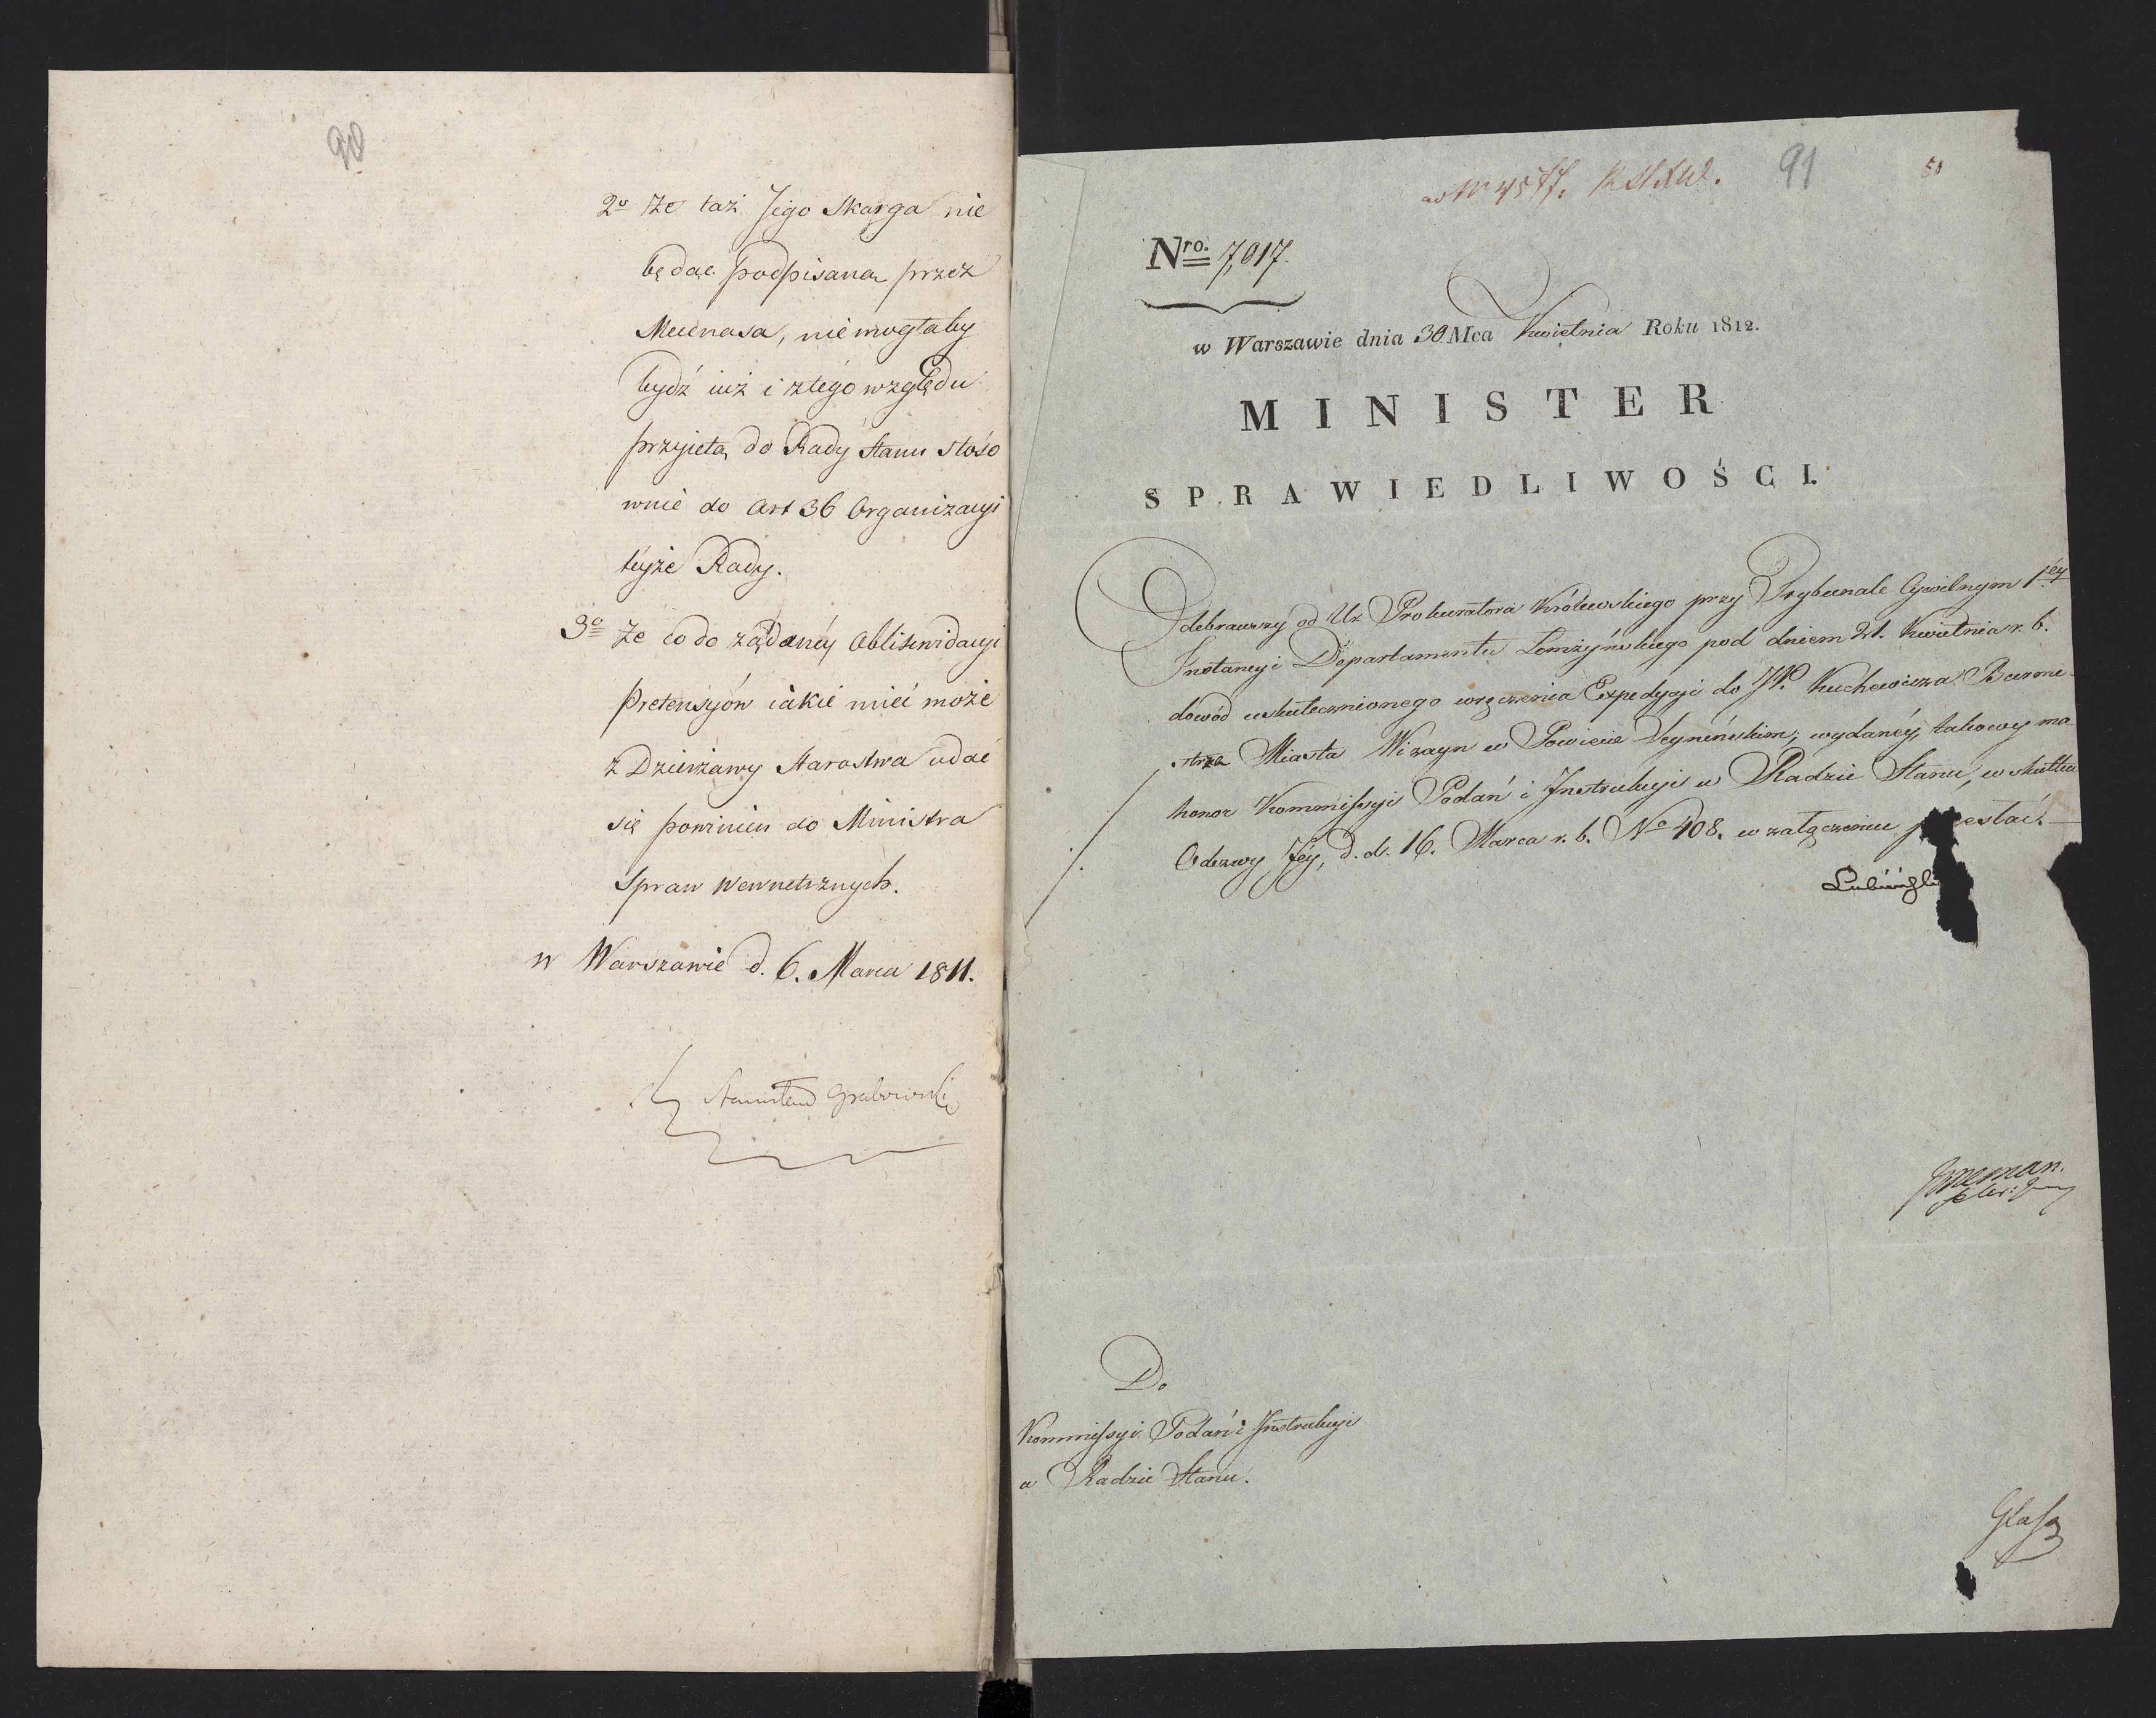 90
2o że taż Jego Skarga nie
będąc podpisaną przez
Mecenasa, niemogłaby
bydź iuż i ztego względu
przyięta do Rady Stanu stoso
wnie do Art 36 Organizacyi
teyże Rady.
3o Że co do żądanéy Obliskwidacyi
Pretensyów iakie mieć może
z Dzierżawy Starostwa udać
się powinien do Ministra
Spraw Wewnetrznych.
w Warszawie d. 6. Marca 1811.
Stanisław Grabowski
91
51
Nro. 7,017.
w Warszawie dnia 30 Mca Kwietnia Roku 1812.
MINISTER
SPRAWIEDLIWOŚCI.
Odebrawszy od Ur. Prokuratora Królewskiego przy Trybunale Cywilnym 1éy
Instancyi Departamentu Łomżyńskiego pod dniem 21. Kwietnia r. b.
dowód uskutecznionego wręczenia Expedycyi do JP. Kuchawicza Burmi-
strza Miasta Wizayn w Powiecie Seyneńskim, wydanéy, takowy ma
honor Kommissyi Podań i Instrukcyi w Radzie Stanu, w skutku
Odezwy Jéy, d. d. 16. Marca r. b. No 408. w załączeniu przesłać.
Do
Kommissyi Podań i Instrukcyi
w Radzie Stanu.
Glass